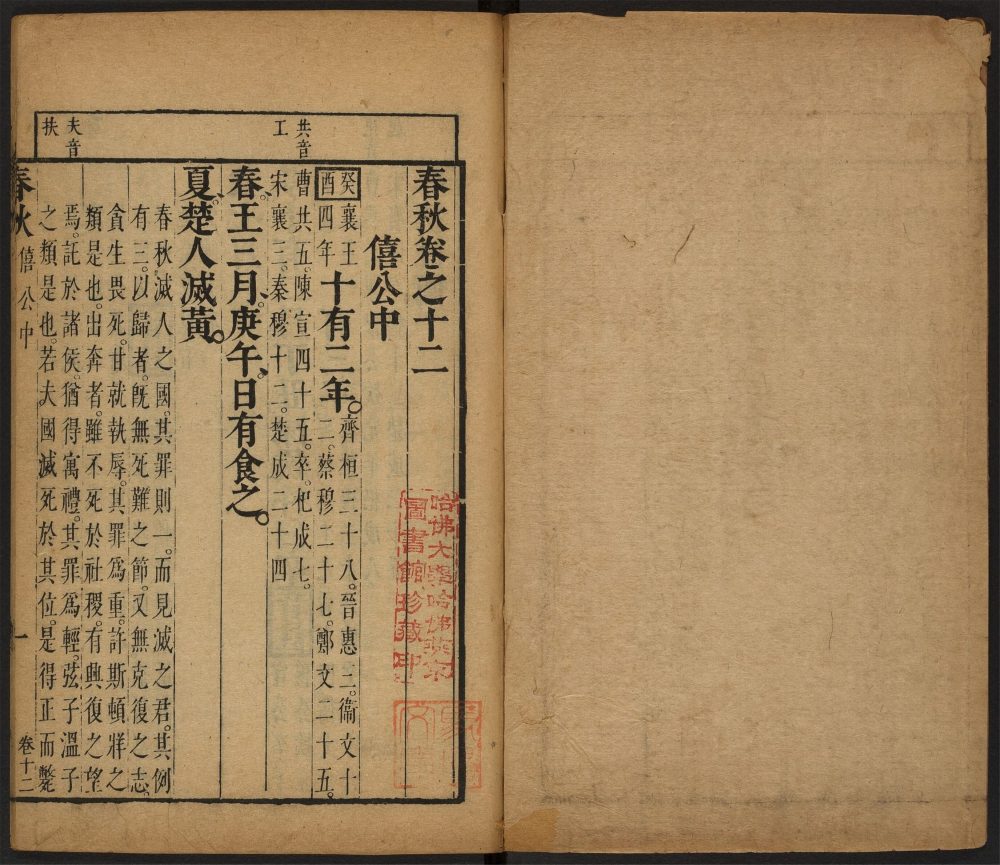 春秋卷之十二
僖公中
癸酉
襄王四年
十有二年。
齊桓三十八。晉惠三。衞文十
二。蔡穆二十七。鄭文二十五。
曹共五。陳宣四十五。卒。杞成七。
宋襄三。秦穆十二。楚成二十四
共音
工
春、王三月、庚午、日有食之。
夏、楚人滅黃。
春秋滅人之國。其罪則一。而見滅之君。其例
有三。以歸者。旣無死難之節。又無克復之志。
貪生畏死。甘就執辱。其罪爲重。許斯頓牂之
類是也。出奔者。雖不死於社稷。有興復之望
焉。託於諸侯。猶得寓禮。其罪爲輕。弦子溫子
之類是也。若夫國滅死於其位。是得正而斃
夫音
扶
春秋
僖公中
一
卷十二
哈佛大學哈佛燕京
圖書館珍藏印